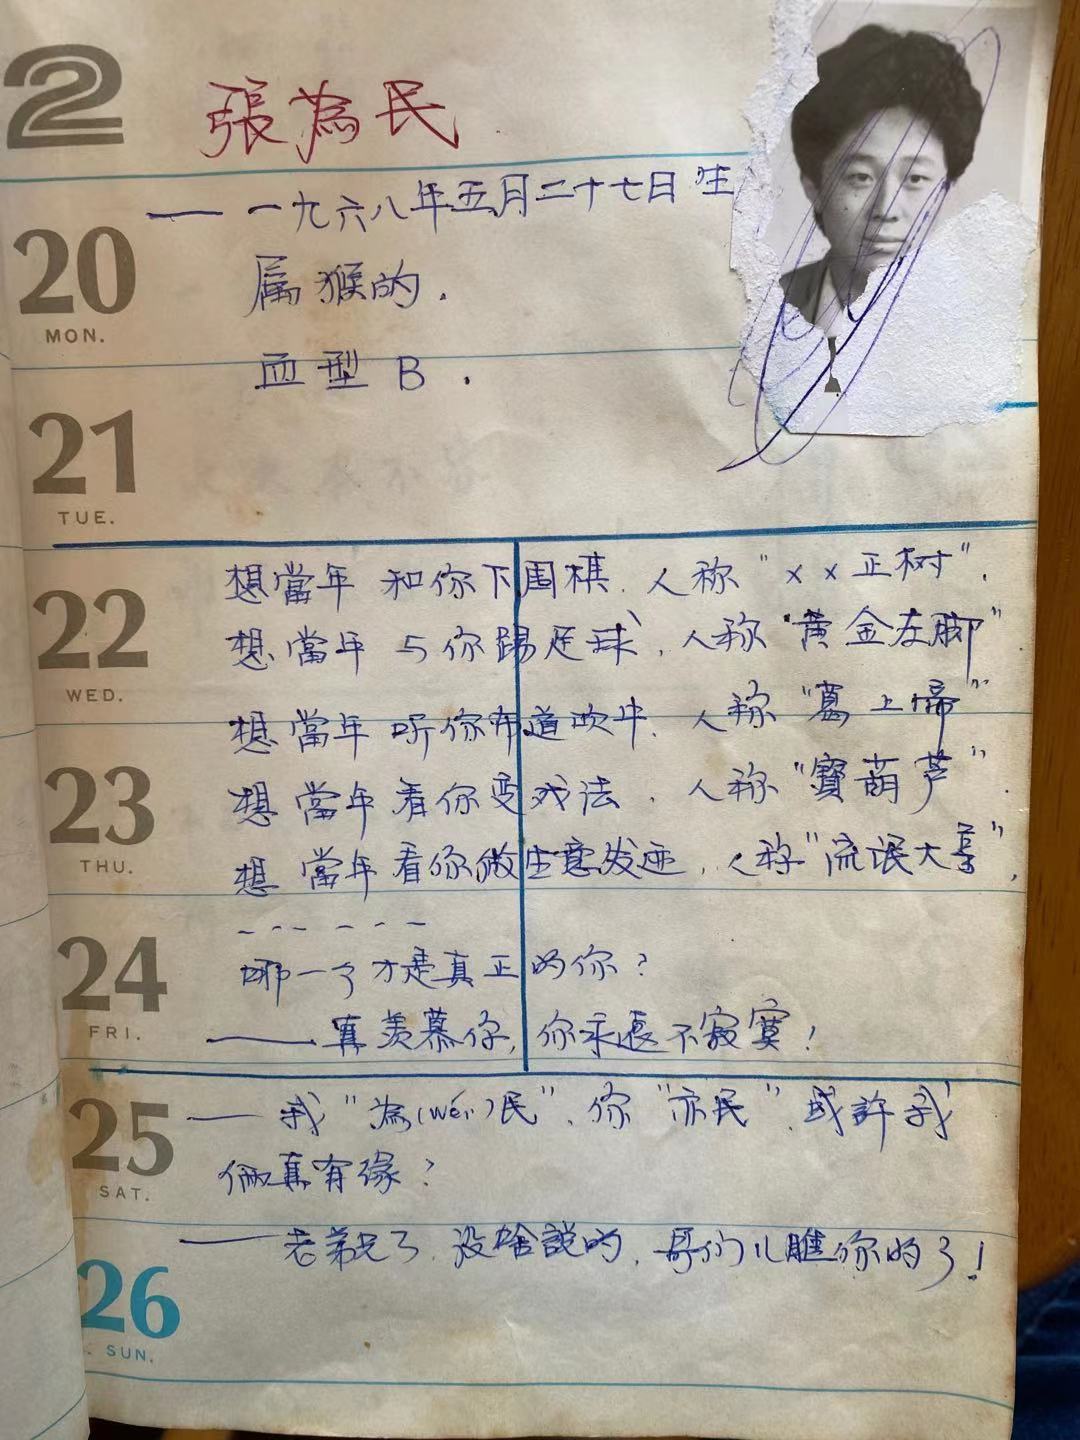 2
張為民
20
MON.
—— 一九六八年五月二十七日生
属猴的.
血型 B .
21
TUE.
22
WED.
想當年 和你下围棋. 人称“××正树”.
想當年 与你踢足球, 人称“黄金左脚”
想當年 听你布道吹牛. 人称“葛上帝”
23
THU.
想當年看你变戏法. 人称“寶葫芦”.
想當年看你做生意发迹, 人称“流氓大亨”,
------
24
FRI.
哪一个才是真正的你?
—— 真羡慕你, 你永远不寂寞!
25
SAT.
—— 我“為(wéi)民”. 你“亦民”. 或許我
俩真有缘?
—— 老弟兄了. 没啥説的. 哥们儿瞧你的了!
26
SUN.